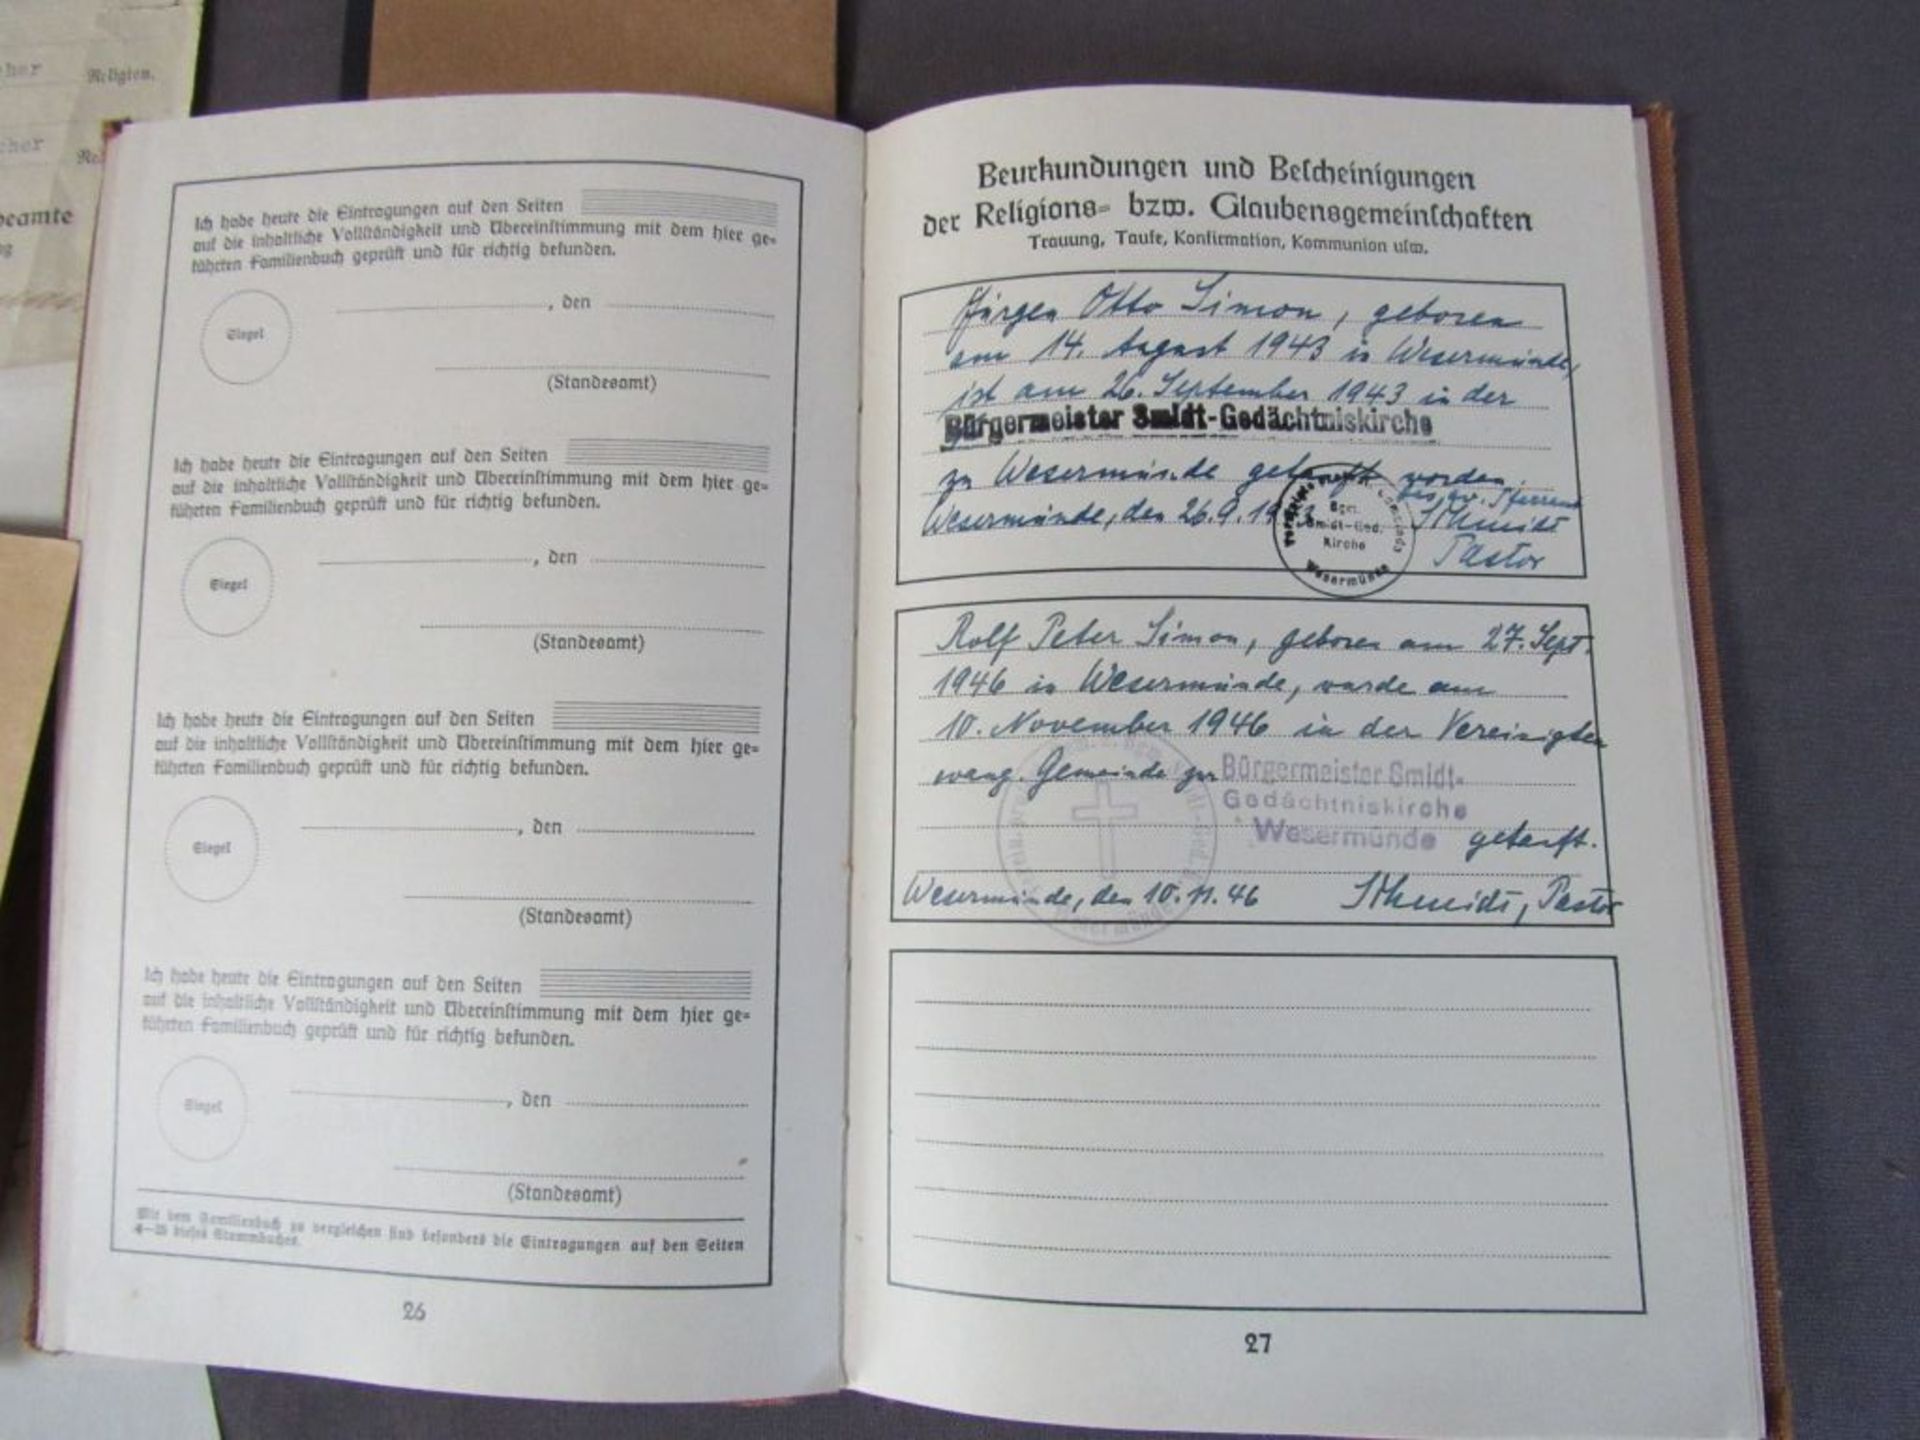 cher Religion.
cher
beamte
Ich habe heute die Eintragungen auf den Seiten
auf die inhaltliche Vollständigkeit und Übereinstimmung mit dem hier ge=
führten Familienbuch geprüft und für richtig befunden.
Siegel
, den
(Standesamt)
Ich habe heute die Eintragungen auf den Seiten
auf die inhaltliche Vollständigkeit und Übereinstimmung mit dem hier ge=
führten Familienbuch geprüft und für richtig befunden.
Siegel
, den
(Standesamt)
Ich habe heute die Eintragungen auf den Seiten
auf die inhaltliche Vollständigkeit und Übereinstimmung mit dem hier ge=
führten Familienbuch geprüft und für richtig befunden.
Siegel
, den
(Standesamt)
Ich habe heute die Eintragungen auf den Seiten
auf die inhaltliche Vollständigkeit und Übereinstimmung mit dem hier ge=
führten Familienbuch geprüft und für richtig befunden.
Siegel
, den
(Standesamt)
Mit dem Familienbuch zu vergleichen sind besonders die Eintragungen auf den Seiten
4—25 dieses Stammbuches.
26
Beurkundungen und Bescheinigungen
der Religions= bzw. Glaubensgemeinschaften
Trauung, Taufe, Konfirmation, Kommunion usw.
Jürgen Otto Simon, geboren
am 14. August 1943 in Wesermünde,
ist am 26. September 1943 in der
Bürgermeister Smidt-Gedächtniskirche
zu Wesermünde getauft worden.
Wesermünde, den 26.9.19 Schmidt
Pastor
Bgm.
Smidt-Ged.
Kirche
Wesermünde
Rolf Peter Simon, geboren am 27. Sept.
1946 in Wesermünde, wurde am
10. November 1946 in der Vereinigten
evang. Gemeinde zur Bürgermeister Smidt-
Gedächtniskirche
Wesermünde getauft.
Wesermünde, den 10.11.46 Schmidt, Pastor
27